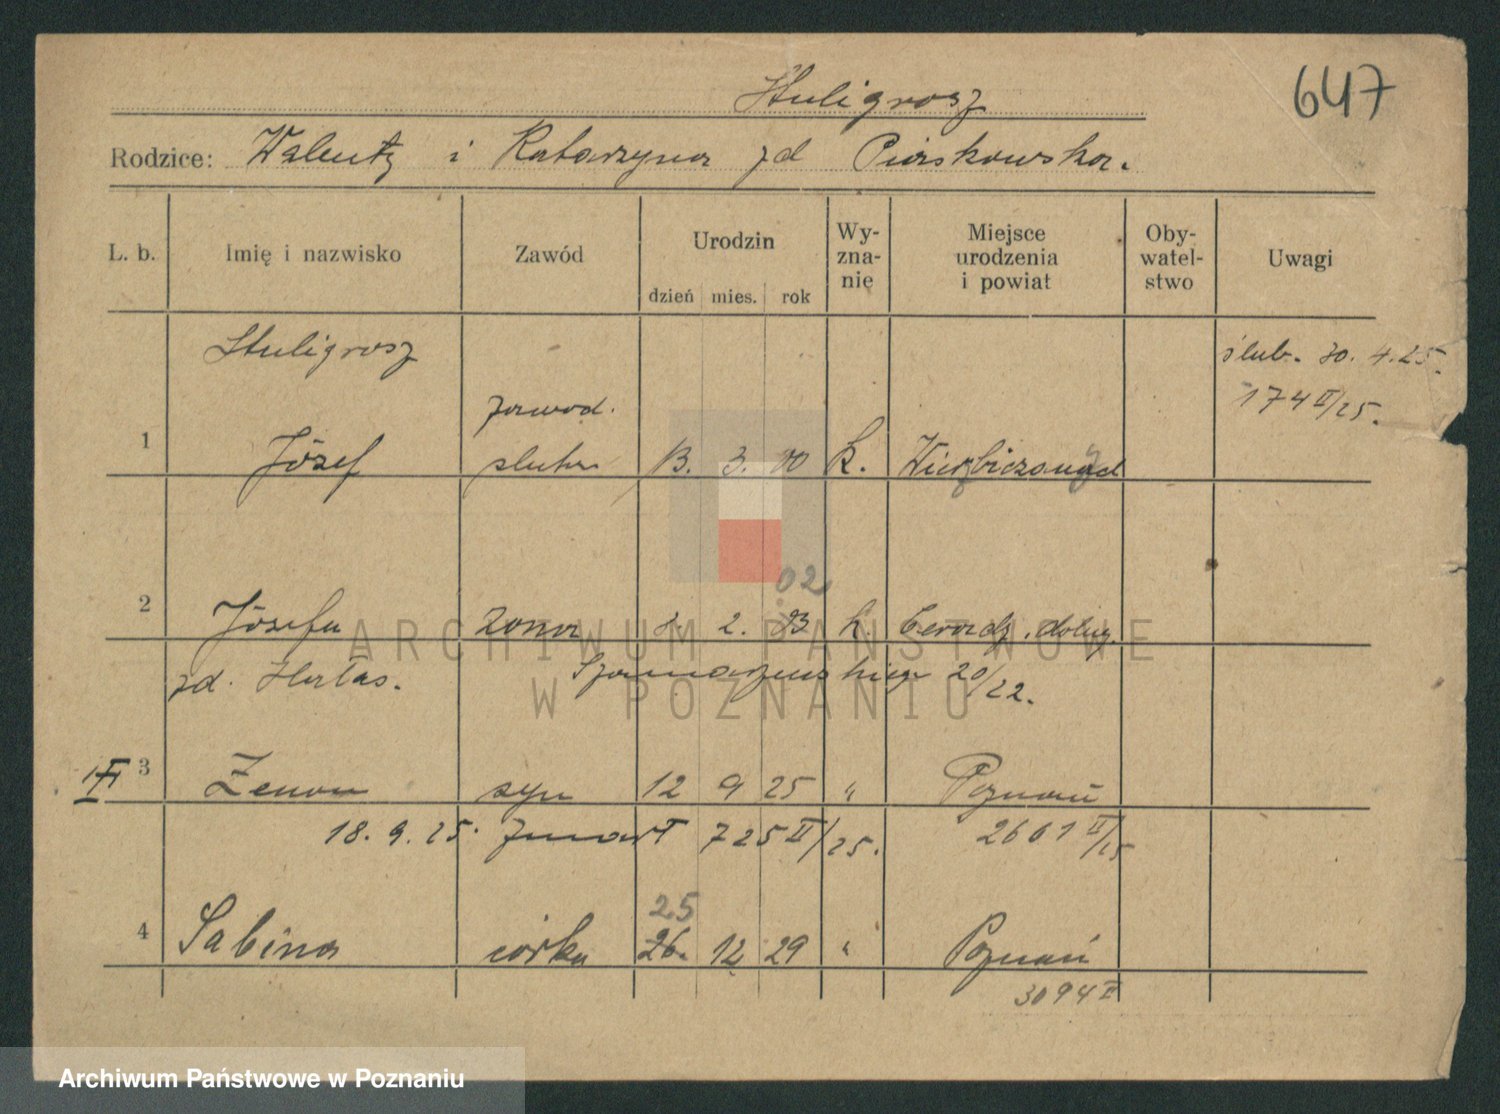 Stuligrosz 647
Rodzice: Walenty i Katarzyna zd Piaskowska.
L. b. Imię i nazwisko Zawód Urodzin dzień mies. rok Wy-zna-nie Miejsce urodzenia i powiat Oby-watel-stwo Uwagi
Stuligrosz ślub. 30. 4. 25.
zawod. 174 II/25.
1 Józef 13. 3. 00 k.
02
2 Józefa żona 2. k.
zd. 20/22.
3 Zenon syn 12 9 25 " Poznań
18. 9. 25. zmarł 725 II/25. 2601 II/25
25
4 Sabina córka 26. 12 29 " Poznań
3094 II
ARCHIWUM PAŃSTWOWE
W POZNANIU
Archiwum Państwowe w Poznaniu